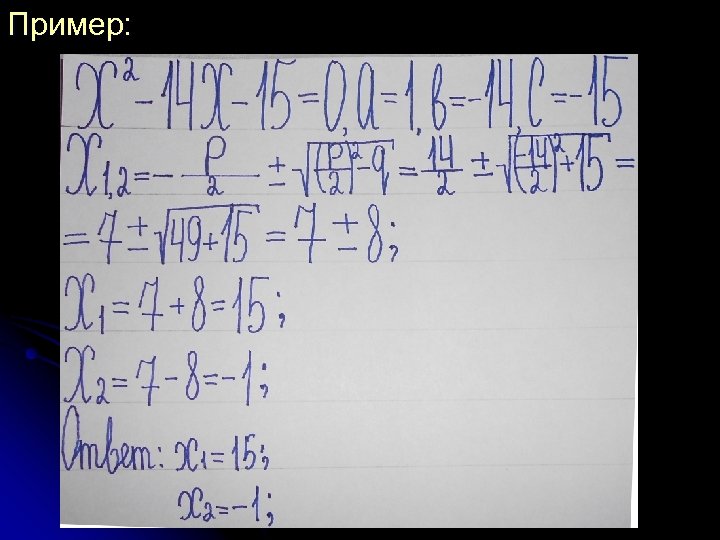 Пример:
x² - 14x - 15 = 0, a = 1, в = -14, c = -15
x₁,₂ = - p/2 ± √((p/2)² - q) = 14/2 ± √((-14/2)² + 15) =
= 7 ± √(49 + 15) = 7 ± 8;
x₁ = 7 + 8 = 15;
x₂ = 7 - 8 = -1;
Ответ: x₁ = 15;
x₂ = -1;